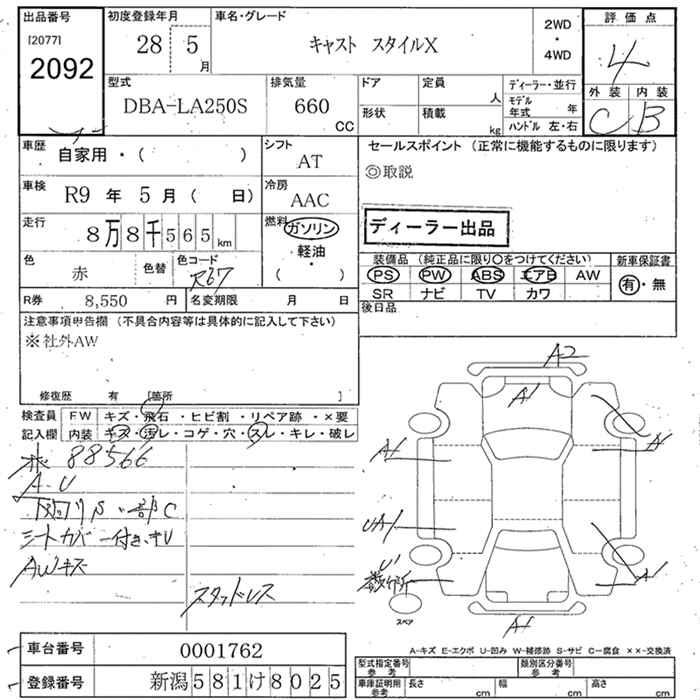 出品番号 初度登録年月 車名・グレード 2WD・4WD 評価点
[2077] 28 5月 キャスト スタイルX 4
2092
外装 内装
C B
型式 排気量 ドア 定員 人 ディーラー・並行
DBA-LA250S 660 CC 形状 積載 kg モデル年式 年
ハンドル 左・右
車歴 自家用・( ) シフト AT セールスポイント (正常に機能するものに限ります)
◎取説
車検 R9 年 5 月 ( 日) 冷房 AAC
走行 8万8千565km 燃料 ガソリン ディーラー出品
軽油
・
( )
色 赤 色替 色コード R67
装備品 (純正品に限り○をつけてください) 新車保証書
PS PW ABS エアB AW 有・無
SR ナビ TV カワ
R券 8,550 円 名変期限 月 日
後日品
注意事項申告欄 (不具合内容等は具体的に記入して下さい)
※社外AW
修復歴 有 [箇所 ]
検査員 FW キズ・飛石・ヒビ割・リペア跡・×要
記入欄 内装 キズ・汚レ・コゲ・穴・スレ・キレ・破レ
88566
A・U
下回りS 一部C
シートカバー付き、キレ
AWキズ
スタッドレス
A2
A1
A1
A1
UA1
U1
A1
A1
スペア
A-キズ E-エクボ U-凹み W-補修跡 S-サビ C-腐食 ××-交換済
車台番号 0001762
登録番号 新潟581け8025
型式指定番号 参考 類別区分番号 参考
車庫証明用 参考 長さ cm 幅 cm 高さ cm